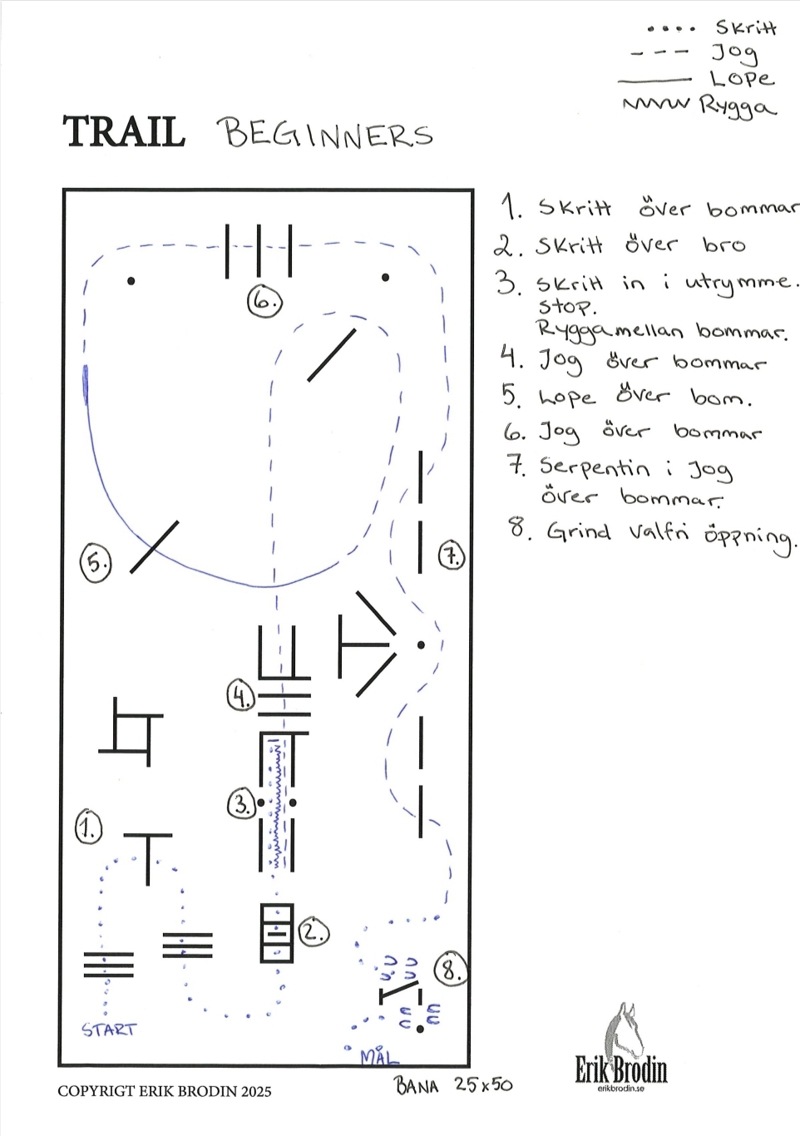 Skritt
Jog
Lope
Rygga
TRAIL BEGINNERS
1. Skritt över bommar
2. Skritt över bro
3. Skritt in i utrymme.
Stop.
Rygga mellan bommar.
4. Jog över bommar
5. Lope över bom.
6. Jog över bommar
7. Serpentin i Jog
över bommar.
8. Grind valfri öppning.
6.
5.
7.
4.
3.
1.
2.
8.
START
MÅL
COPYRIGT ERIK BRODIN 2025
BANA 25x50
Erik Brodin
erikbrodin.se